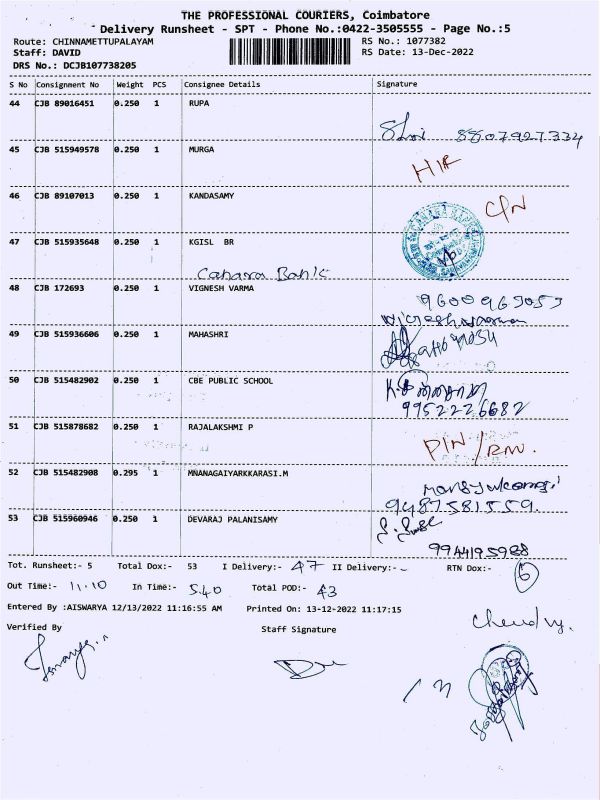 THE PROFESSIONAL COURIERS, Coimbatore
Delivery Runsheet - SPT - Phone No.:0422-3505555 - Page No.:5
Route: CHINNAMETTUPALAYAM RS No.: 1077382
Staff: DAVID RS Date: 13-Dec-2022
DRS No.: DCJB107738205
S No Consignment No Weight PCS Consignee Details Signature
44 CJB 89016451 0.250 1 RUPA
45 CJB 515949578 0.250 1 MURGA
46 CJB 89107013 0.250 1 KANDASAMY
C/N
47 CJB 515935648 0.250 1 KGISL BR
Canara Bank
48 CJB 172693 0.250 1 VIGNESH VARMA
49 CJB 515936606 0.250 1 MAHASHRI
50 CJB 515482902 0.250 1 CBE PUBLIC SCHOOL
9952226682
51 CJB 515878682 0.250 1 RAJALAKSHMI P
PIN/RM.
52 CJB 515482908 0.295 1 MNANAGAIYARKKARASI.M
9487581559.
53 CJB 515960946 0.250 1 DEVARAJ PALANISAMY
9944195988
Tot. Runsheet:- 5 Total Dox:- 53 I Delivery:- 47 II Delivery:- - RTN Dox:- 6
Out Time:- 11.10 In Time:- 5.40 Total POD:- 43
Entered By :AISWARYA 12/13/2022 11:16:55 AM Printed On: 13-12-2022 11:17:15
Verified By Staff Signature